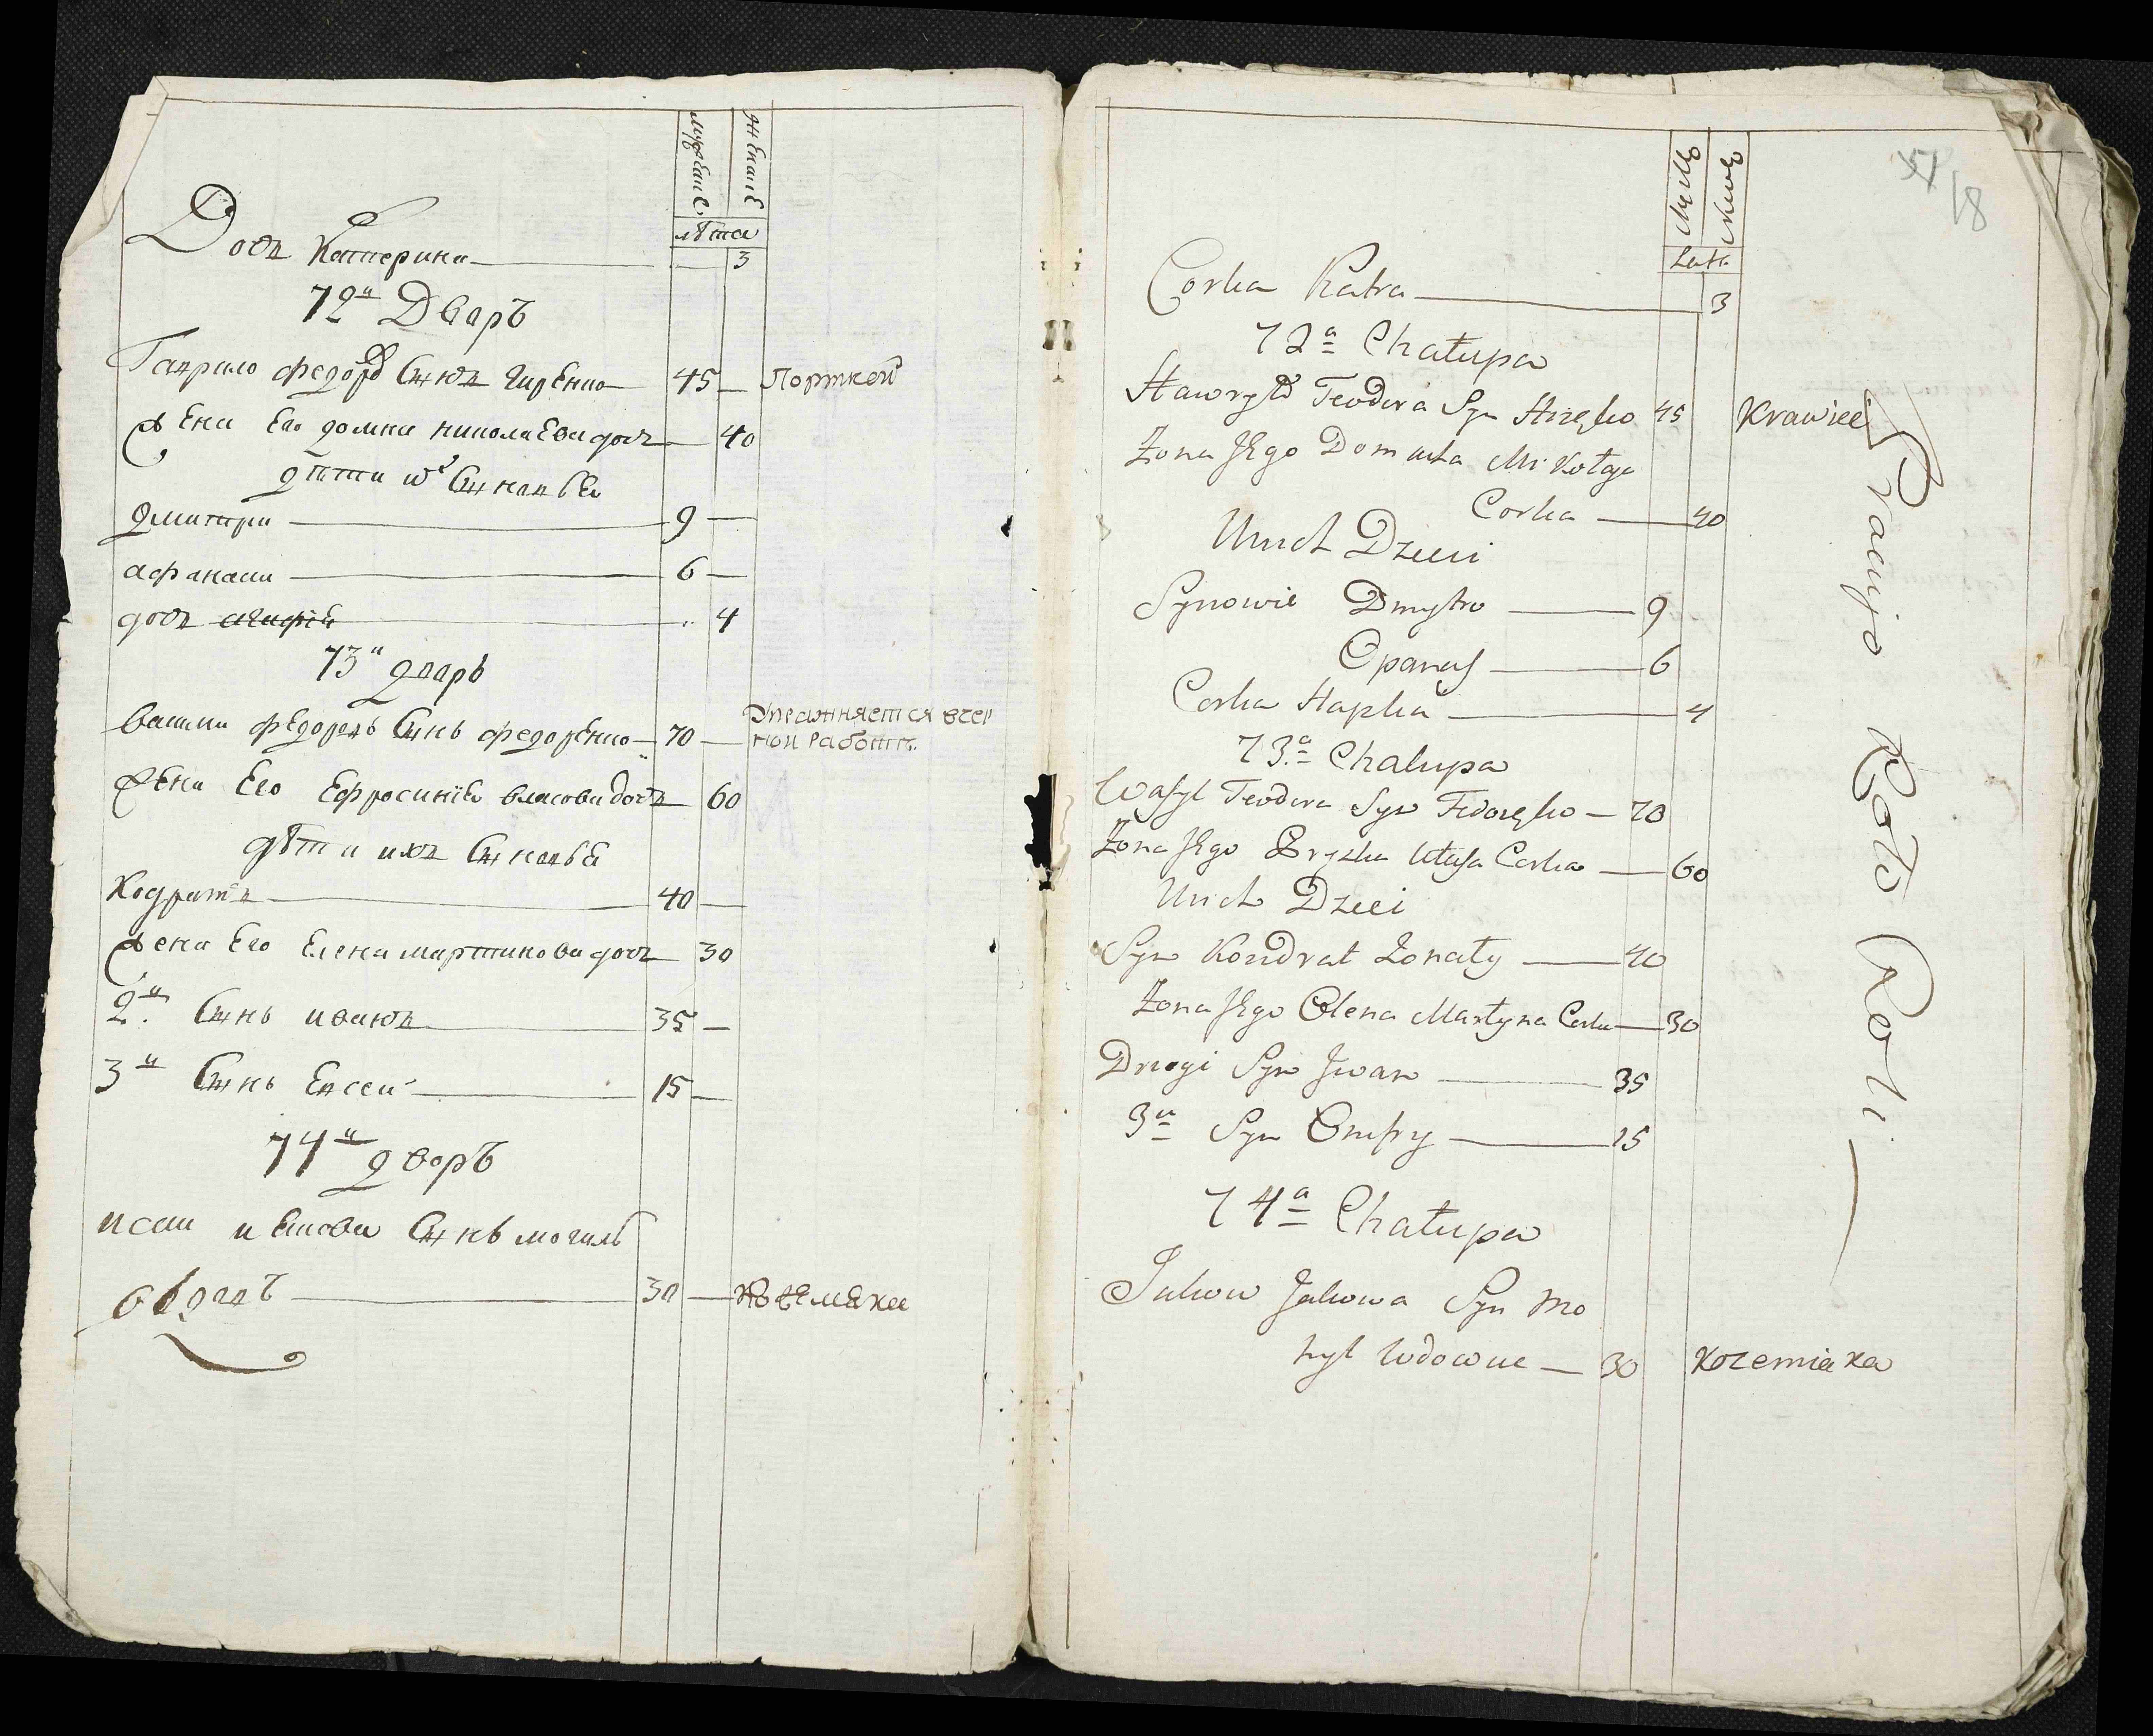 мужеска
женска
лѣта
Дочь Катерина 3
72й Дворъ
Гаврило федоровъ Сынъ Гиренко 45 Порткой
Жена Его домна николаЕва дочь 40
дѣти ихъ Сыновья
дмитри 9
афанаси 6
дочь агафія 4
73й дваръ
васили федоровъ Сынъ федоренко 70 Упражняется вчер
ной работы
Жена Его Ефросинія власова дочь 60
дѣти ихъ Сыновья
Кодратъ 40
Жена Его Елена мартинова дочь 30
2й Сынъ иванъ 35
3й Сынъ Евсей 15
74й дворъ
исаи ивановъ Сынъ могиль
овдовъ 30 Кожемяка
18
Męzk
Lat
Corka Katra 3
72a Chałupa
Hawryło Teodora Syn Hireńko 45 Krawiec
Żona Jego Domaha Mikołaja
Corka 40
U nich Dzieci
Synowie Dmytro 9
Opanas 6
Corka Hapka 4
73a Chałupa
Wasyl Teodora Syn Fedoreńko 70
Żona Jego Pryska Własa Corka 60
U nich Dzieci
Syn Kondrat Żonaty 40
Żona Jego Olena Martyna Corka 30
Drugi Syn Jwan 35
3ci Syn Onufry 15
74a Chałupa
Jakow Jakowa Syn Mo
hyl Wdowiec 30 Kozemiaka
Pracujo Koło Roli